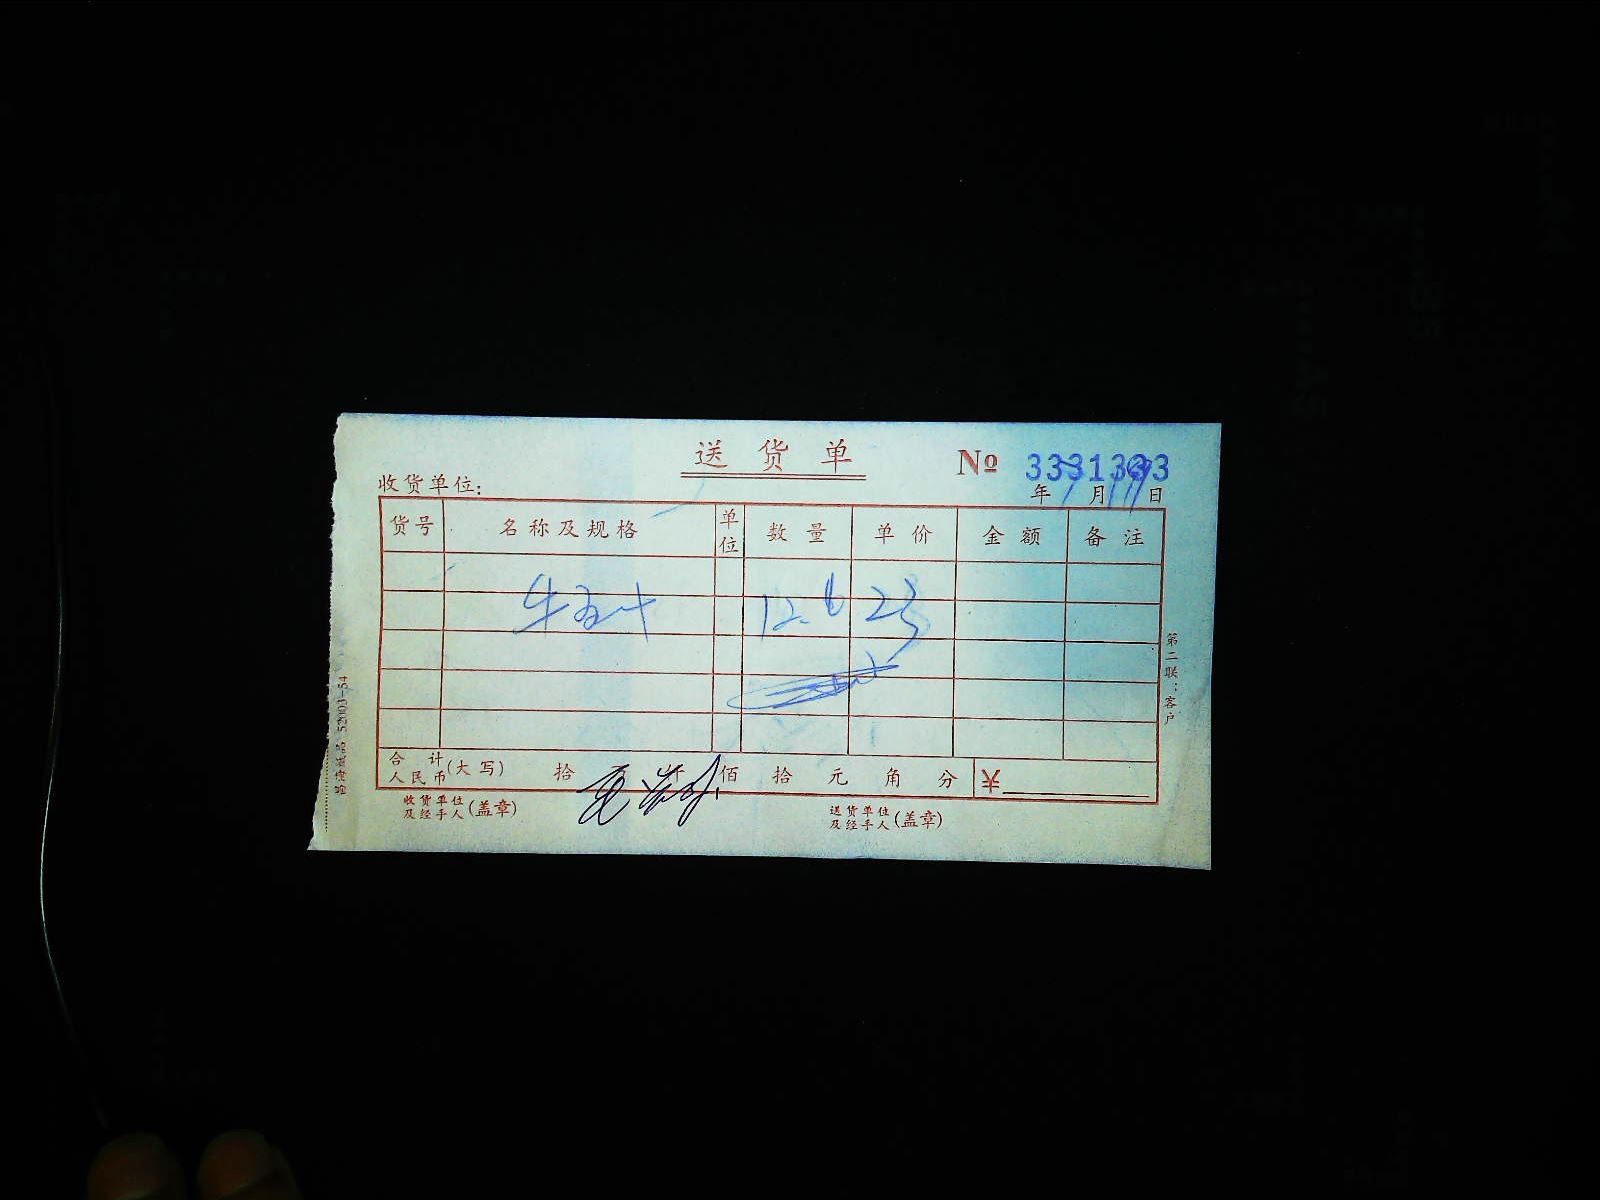 送货单
No 3331333
收货单位:
年 月 日
货号 名称及规格 单位 数量 单价 金额 备注
12.6 23
合计人民币(大写) 拾 仟 佰 拾 元 角 分 ¥
收货单位及经手人(盖章) 送货单位及经手人(盖章)
第二联:客户